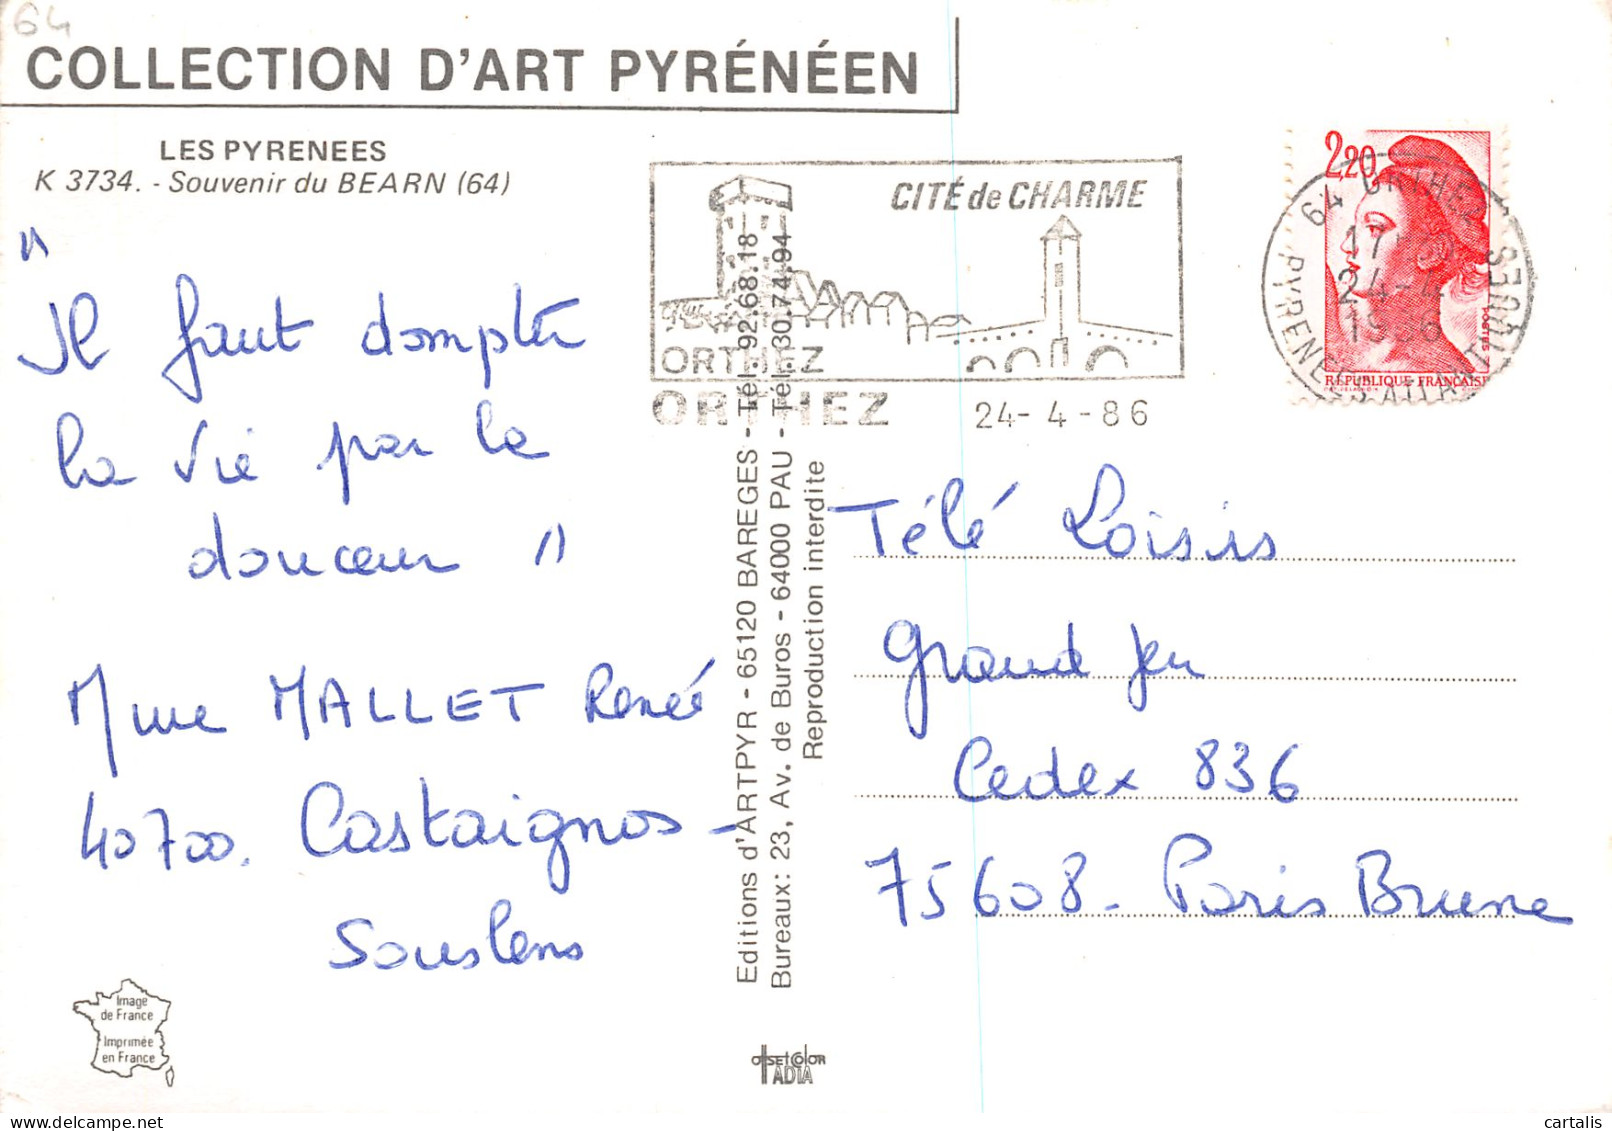 64
COLLECTION D'ART PYRÉNÉEN
LES PYRENEES
K 3734. - Souvenir du BEARN (64)
"
Il faut dompter
la vie par la
douceur "
Mme MALLET Renée
40700. Castaignos -
Souslens
Image
de France
Imprimée
en France
Editions d'ARTPYR - 65120 BAREGES - Tél. 92.68.18
Bureaux: 23, Av. de Buros - 64000 PAU - Tél. 30.74.94
Reproduction interdite
OFFSET COLOR
ADIA
CITÉ de CHARME
ORTHEZ
ORTHEZ 24-4-86
2,20
POSTES
REPUBLIQUE FRANÇAISE
64 ORTHEZ
24-4
1986
PYRENEES ATLANTIQUES
Télé Loisirs
Grand Jeu
Cedex 836
75608 - Paris Brune
cartalis